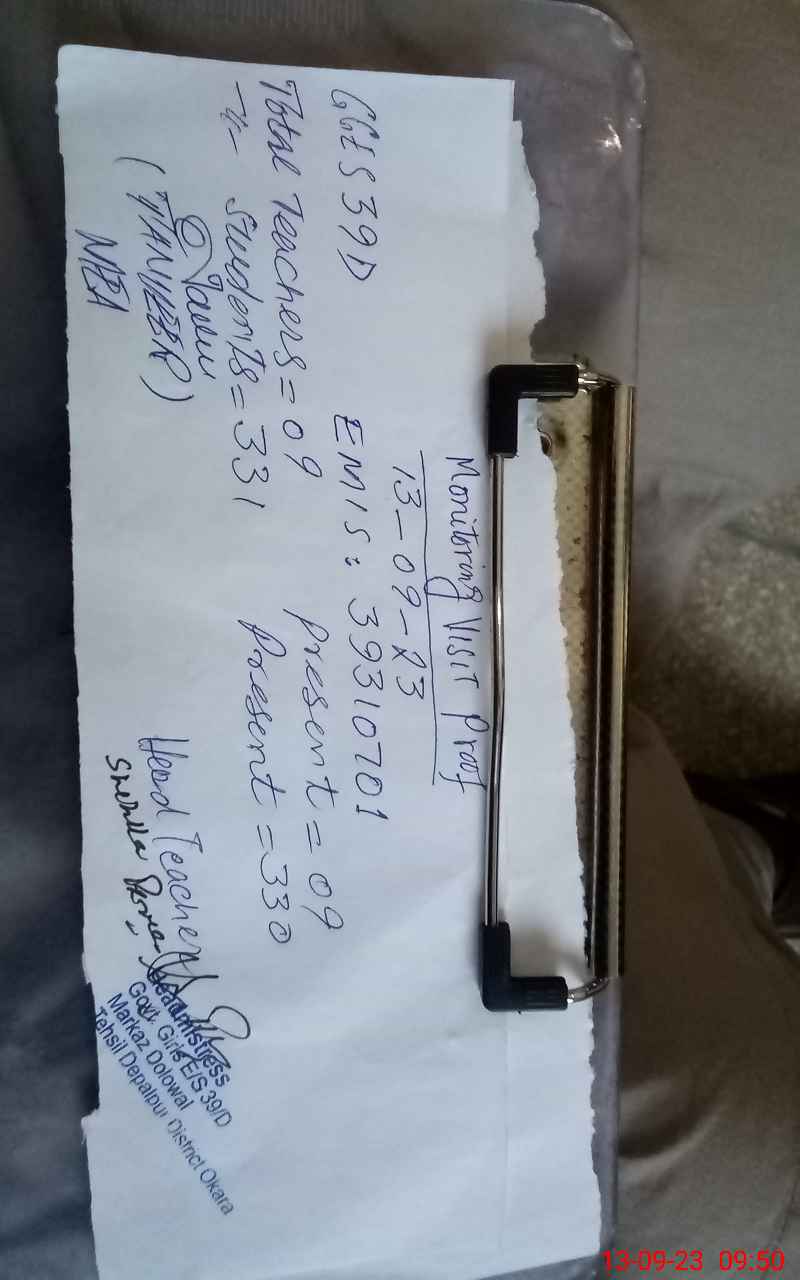 Monitoring Visit Proof
13-09-23
GGES 39D EMIS: 39310701
Total Teachers = 09 present = 09
Students = 331 present = 330
(TANVEER)
MEA
Head Teacher
Headmistress
Govt. Girls E/S 39/D
Markaz Dolowal
Tehsil Depalpur District Okara
13-09-23 09:50